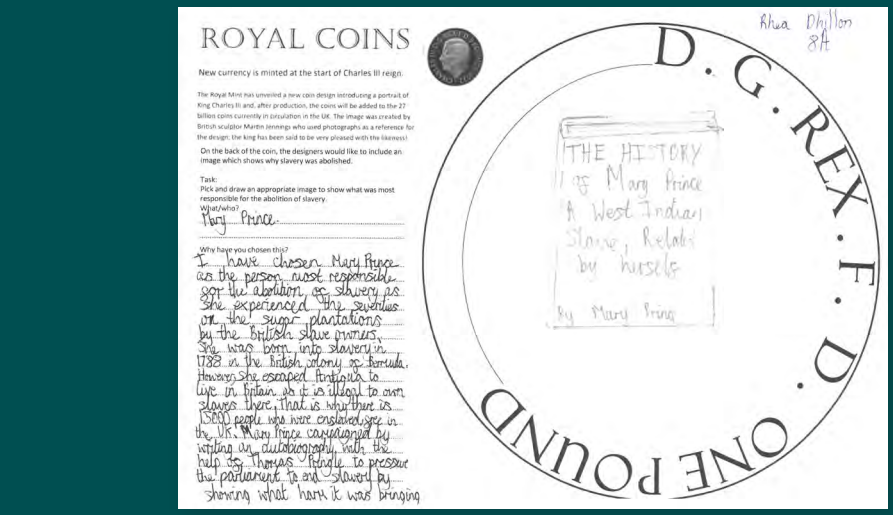 ROYAL COINS
New currency is minted at the start of Charles III reign.
The Royal Mint has unveiled a new coin design introducing a portrait of
King Charles III and, after production, the coins will be added to the 27
billion coins currently in circulation in the UK. The image was created by
British sculptor Martin Jennings who used photographs as a reference for
the design; the king has been said to be very pleased with the likeness!
On the back of the coin, the designers would like to include an
image which shows why slavery was abolished.
Task:
Pick and draw an appropriate image to show what was most
responsible for the abolition of slavery.
What/who?
Mary Prince
Why have you chosen this?
I have chosen Mary Prince
as the person most responsible
for the abolition of slavery as
she experienced the severities
on the sugar plantations
by the British slave owners.
She was born into slavery in
1788 in the British colony of Bermuda.
However, she escaped Antigua to
live in Britain as it is illegal to own
slaves there, That is why there is
15000 people who were enslaved free in
the UK. Mary Prince campaigned by
writing an autobiography with the
help of Thomas Pringle to pressure
the parliament to end slavery by
showing what harm it was bringing
Rhea Dhillon
8A
D. G. REX. F. D. ONE POUND
THE HISTORY
of Mary Prince
A West Indian
Slave, Related
by herself
By Mary Prince